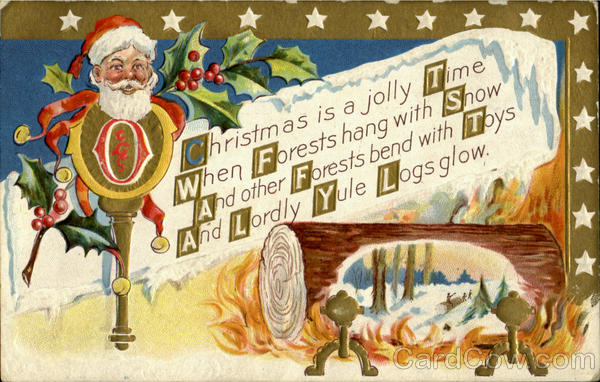 O
Christmas is a jolly Time
When Forests hang with Snow
And other Forests bend with Toys
And Lordly Yule Logs glow.
CardCow.com